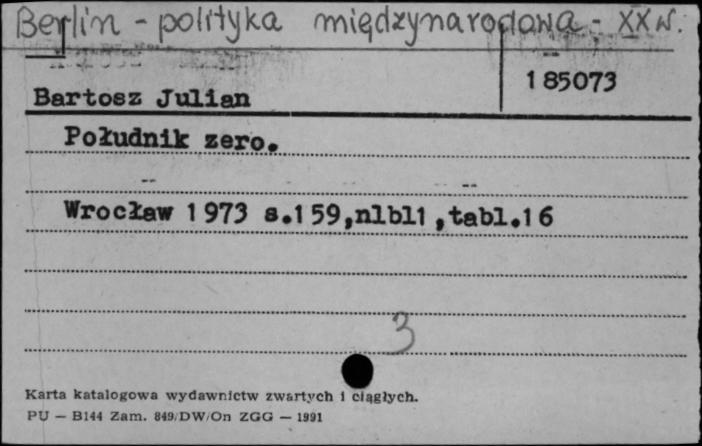 Berlin - polityka międzynarodowa - XX w.
185073
Bartosz Julian
Południk zero.
Wrocław 1973 s.159,nlbl1,tabl.16
3
Karta katalogowa wydawnictw zwartych i ciągłych.
PU — B144 Zam. 849/DW/On ZGG — 1991